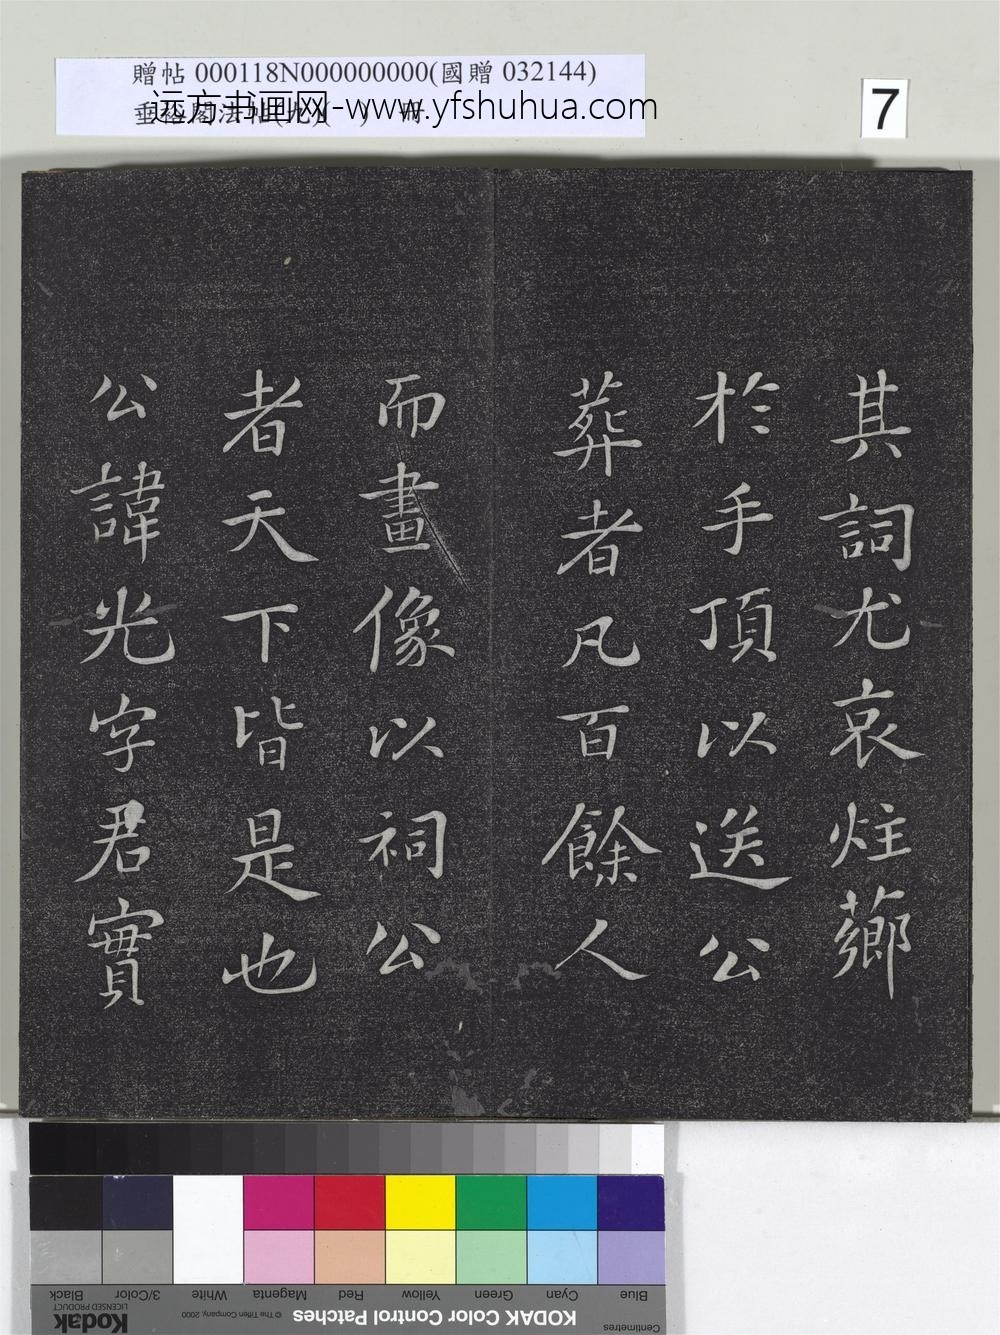 贈帖 000118N000000000(國贈 032144)
远方书画网-www.yfshuhua.com
法帖(九)( ) 冊
7
其詞尤哀炷薌
於手頂以送公
葬者凡百餘人
而畫像以祠公
者天下皆是也
公諱光字君實
Blue Cyan Green Yellow Red Magenta White 3/Color Black
Centimetres
KODAK Color Control Patches
© The Tiffen Company, 2000
Kodak
LICENSED PRODUCT